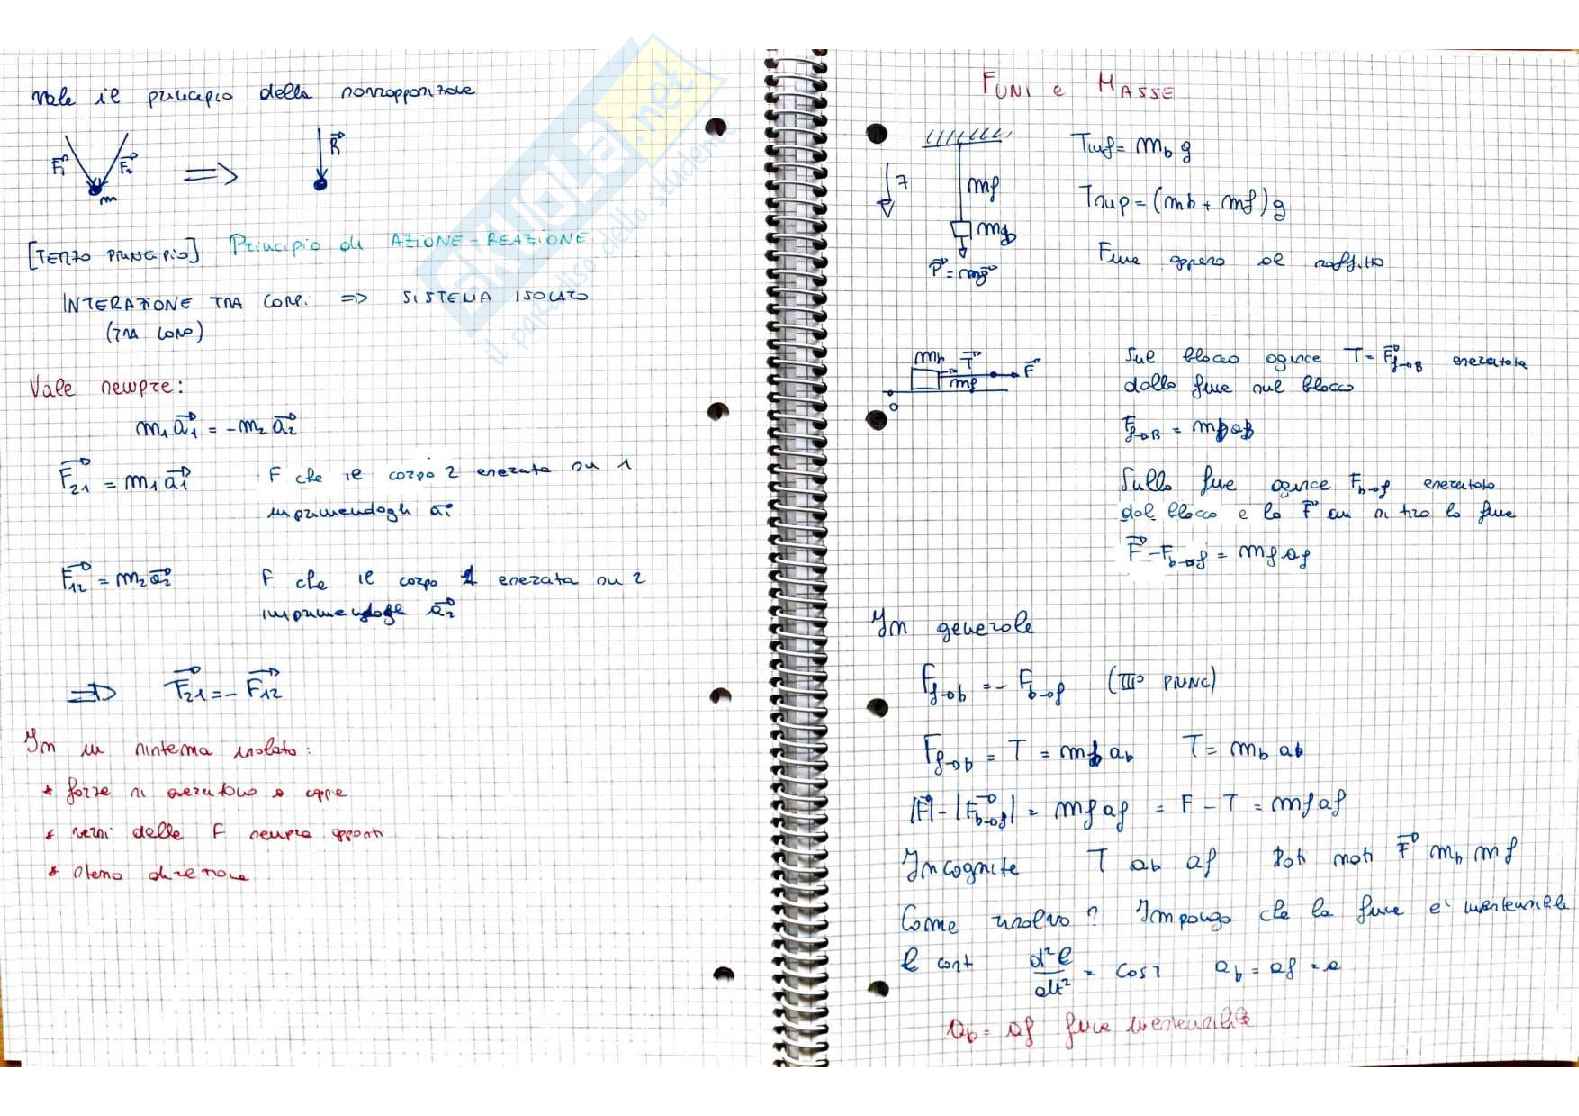 Vale il principio della sovrapposizione
F₁ F₂ ⇒ R
m
[TERZO PRINCIPIO] Principio di AZIONE-REAZIONE
INTERAZIONE TRA CORPI ⇒ SISTEMA ISOLATO
(TRA LORO)
Vale sempre:
m₁ a₁ = -m₂ a₂
F₂₁ = m₁ a₁ F che il corpo 2 esercita su 1
imprimendogli a₁
F₁₂ = m₂ a₂ F che il corpo 1 esercita su 2
imprimendogli a₂
⇒ F₂₁ = - F₁₂
In un sistema isolato:
* forze si esercitano a coppie
* versi delle F sempre opposti
* stessa direzione
FUNI e MASSE
mf
mb
P = mg
Tinf = mb g
Tsup = (mb + mf) g
Fune appesa al soffitto
mb T F
mf
0
Sul blocco agisce T = F f→B esercitata
dalla fune sul blocco
F f→B = mb ab
Sulla fune agisce F b→f esercitata
dal blocco e la F con si tira la fune
F - F b→f = mf af
In generale
F f→b = - F b→f (III° PRINC)
F f→b = T = mb ab T = mb ab
|F| - |F b→f| = mf af = F - T = mf af
Incognite T ab af Dati noti F mb mf
Come risolvo? Impongo che la fune è inestensibile
l cost d²l/dt² = cost ab = af = a
ab = af fune inestensibile
SKUOLA.net
il paradiso dello studente